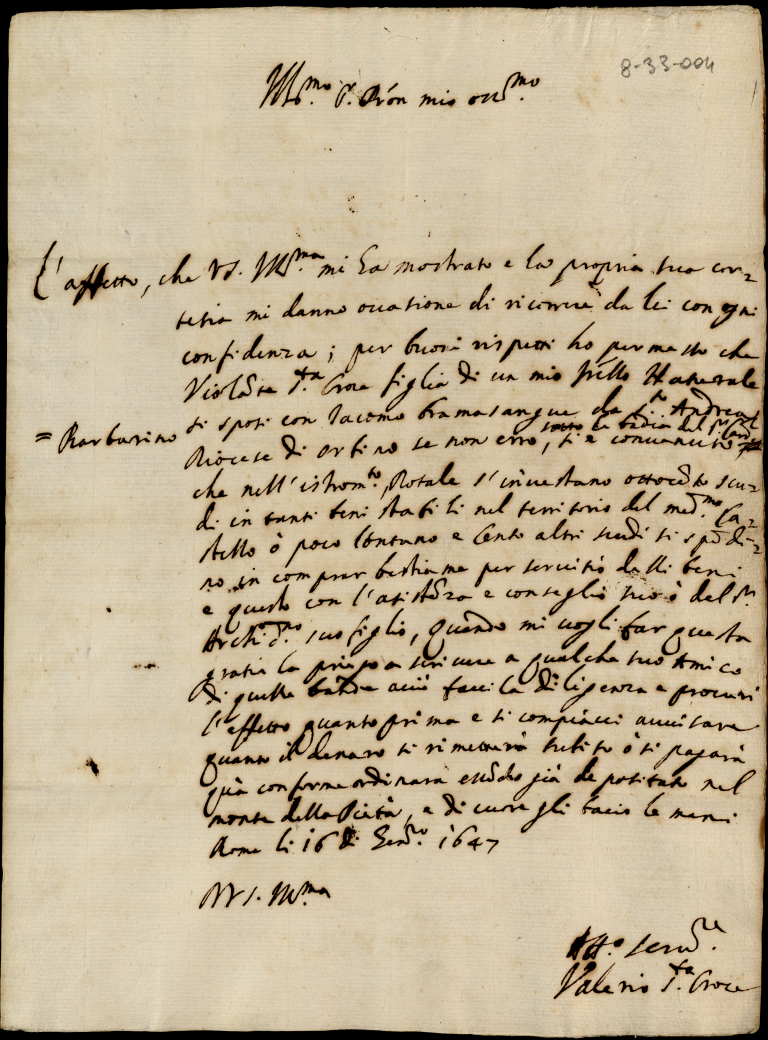 8-33-004
Ill.mo S.r Pron mio oss.mo
L'affetto, che VS. Ill.ma mi ha mostrato e la propria sua cor=
tesia mi danno occasione di ricorrere da lei con ogni
confidenza; per buoni rispetti ho permesso che
Violate S.ta Croce figlia di un mio frello Naturale
si sposi con Iacomo Bramasangue da S.to Andrea
sotto la badia del S.r Card.l
= Barbarino
Diocese di Orbino se non erro, si è convenuto
che nell'istrom.to Dotale s'investano ottocēto scu=
di in tanti beni stabili nel territorio del med.mo Ca=
stello ò poco lontano e Cento altri scudi si spēdi=
no in comprar bestiame per servitio delli beni
e questo con l'asistēza e conseglio suo ò del S.r
Archid.no suo figlio, quando mi vogli far questa
gratia la priego a scrivere a qualche suo Amico
di quelle bande acciò facci la diligenza e procuri
l'effetto quanto prima e si compiacci avvisare
quanto il denaro si rimetterà subito ò si pagarà
quà conforme ordinarà essēdo già depositato nel
monte della Pietà, e di cuore gli bacio le mani
Roma li 16 di Gen.ro 1647
D VS. Ill.ma
Aff.o Serv.re
Valerio S.ta Croce